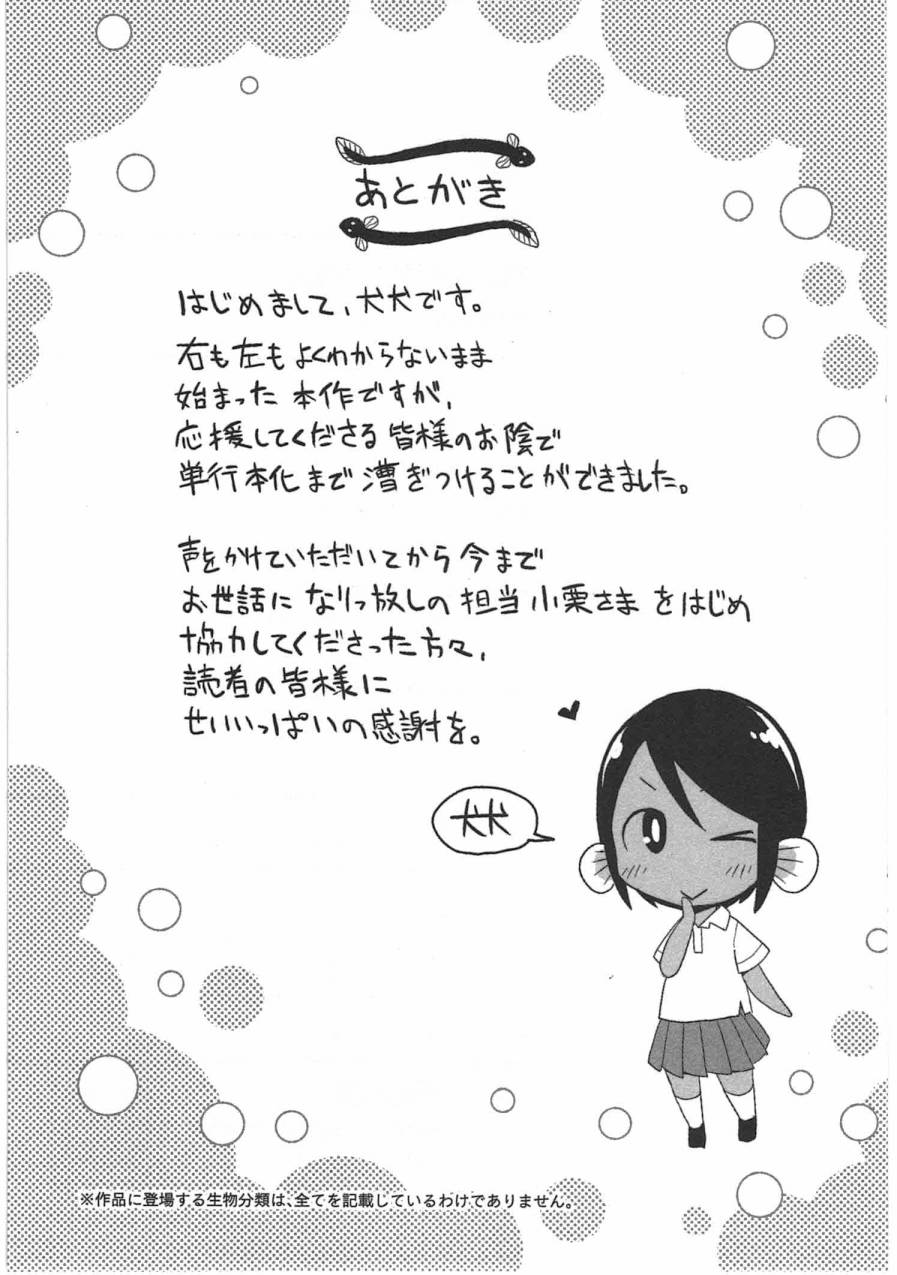 あとがき
はじめまして、犬犬です。
右も左もよくわからないまま
始まった本作ですが、
応援してくださる皆様のお陰で
単行本化まで漕ぎつけることができました。
声をかけていただいてから今まで
お世話になりっ放しの担当小栗さまをはじめ
協力してくださった方々、
読者の皆様に
せいいっぱいの感謝を。
犬犬
※作品に登場する生物分類は、全てを記載しているわけでありません。